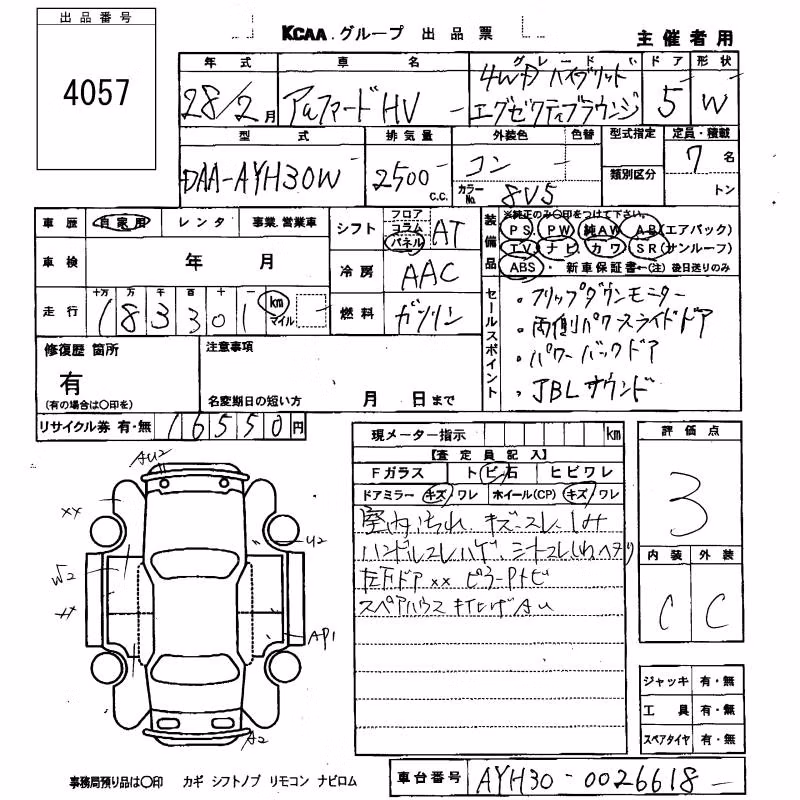 出品番号
4057
KCAA.グループ 出品票
主催者用
年式 車名 グレード ドア 形状
28/2月 アルファードHV 4WD ハイブリット
エグゼクティブラウンジ 5 W
型式 排気量 外装色 色替 型式指定 定員・積載
DAA-AYH30W 2500 c.c. コン 7名
カラーNo. 8V5 類別区分 トン
車歴 自家用 レンタ 事業.営業車
シフト フロア コラム パネル AT
車検 年 月
冷房 AAC
走行 十万 万 千 百 十 一
183301 km マイル
燃料 ガソリン
装備品 ※純正のみ〇印をつけて下さい。
PS. PW 純AW AB(エアバック)
TV ナビ カワ SR(サンルーフ)
ABS・新車保証書←(注)後日送りのみ
セールスポイント
・フリップダウンモニター
・両側パワースライドドア
・パワーバックドア
・JBLサウンド
修復歴 箇所
有
(有の場合は〇印を)
注意事項
名変期日の短い方 月 日まで
リサイクル券 有・無 16550円
現メーター指示 km
【査定員記入】
Fガラス トビ石 ヒビワレ
ドアミラー キズ ワレ ホイール(CP) キズ ワレ
室内汚れ キズ・スレ シミ
ハンドルスレハゲ シートスレしわヘタリ
左下ドア×× ピラーPトビ
スペアハウス キ AU
評価点
3
内装 外装
C C
ジャッキ 有・無
工具 有・無
スペアタイヤ 有・無
AU2
××
U2
√2
AP1
A2
事務局預り品は〇印 カギ シフトノブ リモコン ナビロム
車台番号 AYH30-0026618